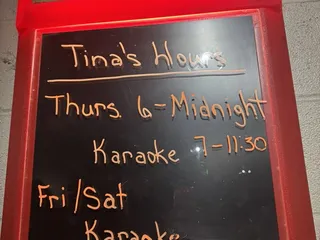 Tina's Hours
Thurs. 6-Midnight
Karaoke 7-11:30
Fri/Sat
Karaoke